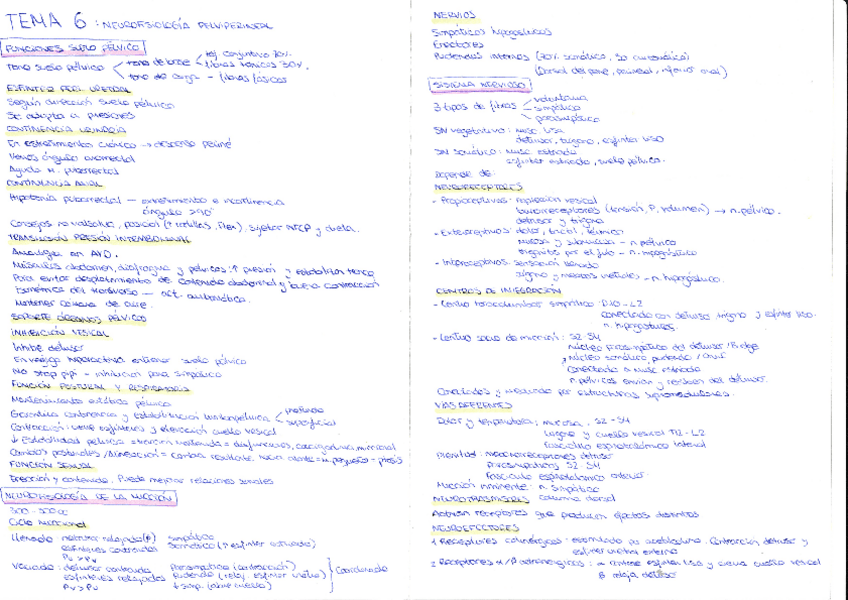 TEMA 6: NEUROFISIOLOGÍA PELVIPERINEAL
FUNCIONES SUELO PÉLVICO
Tono suelo pélvico < tono de base < tej. conjuntivo 70%.
fibras tónicas 30%.
tono de carga - fibras fásicas
ESFÍNTER PERI URETRAL
Según dirección suelo pélvico
Se adapta a presiones
CONTINENCIA URINARIA
En estreñimiento crónico → descenso periné
Vemos ángulo anorrectal
Ayuda m. puborrectal
CONTINENCIA ANAL
Hipotonía puborrectal - estreñimiento e incontinencia
ángulo
Consejos: no valsalva, posición
TRANSMISIÓN PRESIÓN INTRAABDOMINAL
Músculos abdomen, diafragma y pélvicos: ↑ presión y estabilizan tronco
Para evitar desplazamiento de contenido abdominal y buena contracción
Isométrica del transverso - act. automática.
Mantener columna de aire.
SOPORTE ÓRGANOS PÉLVICOS
INHIBICIÓN VESICAL
Inhibe detrusor
En vejiga hiperactiva entrenar suelo pélvico
No stop pipi - inhibición parasimpático
FUNCIÓN POSTURAL Y RESPIRATORIA
Mantenimiento estática pélvica
Garantiza continencia y estabilización lumbopélvica < profunda
superficial
Contracción: cierre esfínteres y elevación cuello vesical
↓ Estabilidad pélvica =
FUNCIÓN SEXUAL
Erección y contenido. Puede mejorar relaciones sexuales
NEUROFISIOLOGÍA DE LA MICCIÓN
300 - 500 cc
Ciclo miccional
Llenado: detrusor relajado(β) simpático
esfínteres contraídos Somático (↑ esfínter estriado)
Pu > Pv
Vaciado: detrusor contraído Parasimpático (contracción)
esfínteres relajados Pudendo (relaj. esfínter estriado) } Coordinado
Pv > Pu ↓ simp. (abre cuello)
NERVIOS
Simpáticos hipogástricos
Erectores
Pudendos internos (70% somático, 30 autonómico)
(Dorsal del pene, perineal, inferior anal)
SISTEMA NERVIOSO
3 tipos de fibras < voluntaria
simpático
parasimpático
SN vegetativo: musc lisa
detrusor, trígono, esfínter liso
SN somático: musc estriada
esfínter estriado, suelo pélvico.
Depende de:
NEURORECEPTORES
- Propioceptivos: repleción vesical
baroreceptores (tensión, P, volumen) → n. pélvico.
detrusor y trígono
- Exteroceptivos: dolor, táctil, térmico
mucosa y submucosa - n. pélvico
trígono - n. hipogástrico
- Interoceptivos: sensación llenado
trígono y mucosa uretrales - n. hipogástrico.
CENTROS DE INTEGRACIÓN
- Centro toracolumbar simpático: D10 - L2
conectado con detrusor trígono y esfínter liso.
n. hipogástricos.
- Centro sacro de micción: S2-S4
Núcleo parasimpático del detrusor
Núcleo somático, pudendo / Onuf
Conectado a musc estriada
n. pélvicos envían y reciben del detrusor.
Conectados y regulados por estructuras supramedulares.
VÍAS AFERENTES
Dolor y temperatura: mucosa, S2-S4
trígono y cuello vesical T12-L2
fascículo espinotalámico lateral
Plenitud: mecanorreceptores detrusor
parasimpáticos S2-S4
Fascículo espinotalámico anterior
Micción inminente: n. simpático
columna dorsal
NEUROTRASMISORES
Activan receptores que producen efectos distintos
NEUROEFECTORES
1 Receptores colinérgicos: estimulado por acetilcolina. Contracción detrusor y
esfínter uretral externo
2 Receptores α/β adrenérgicos: α contrae esfínter liso y cierra cuello vesical
β relaja detrusor